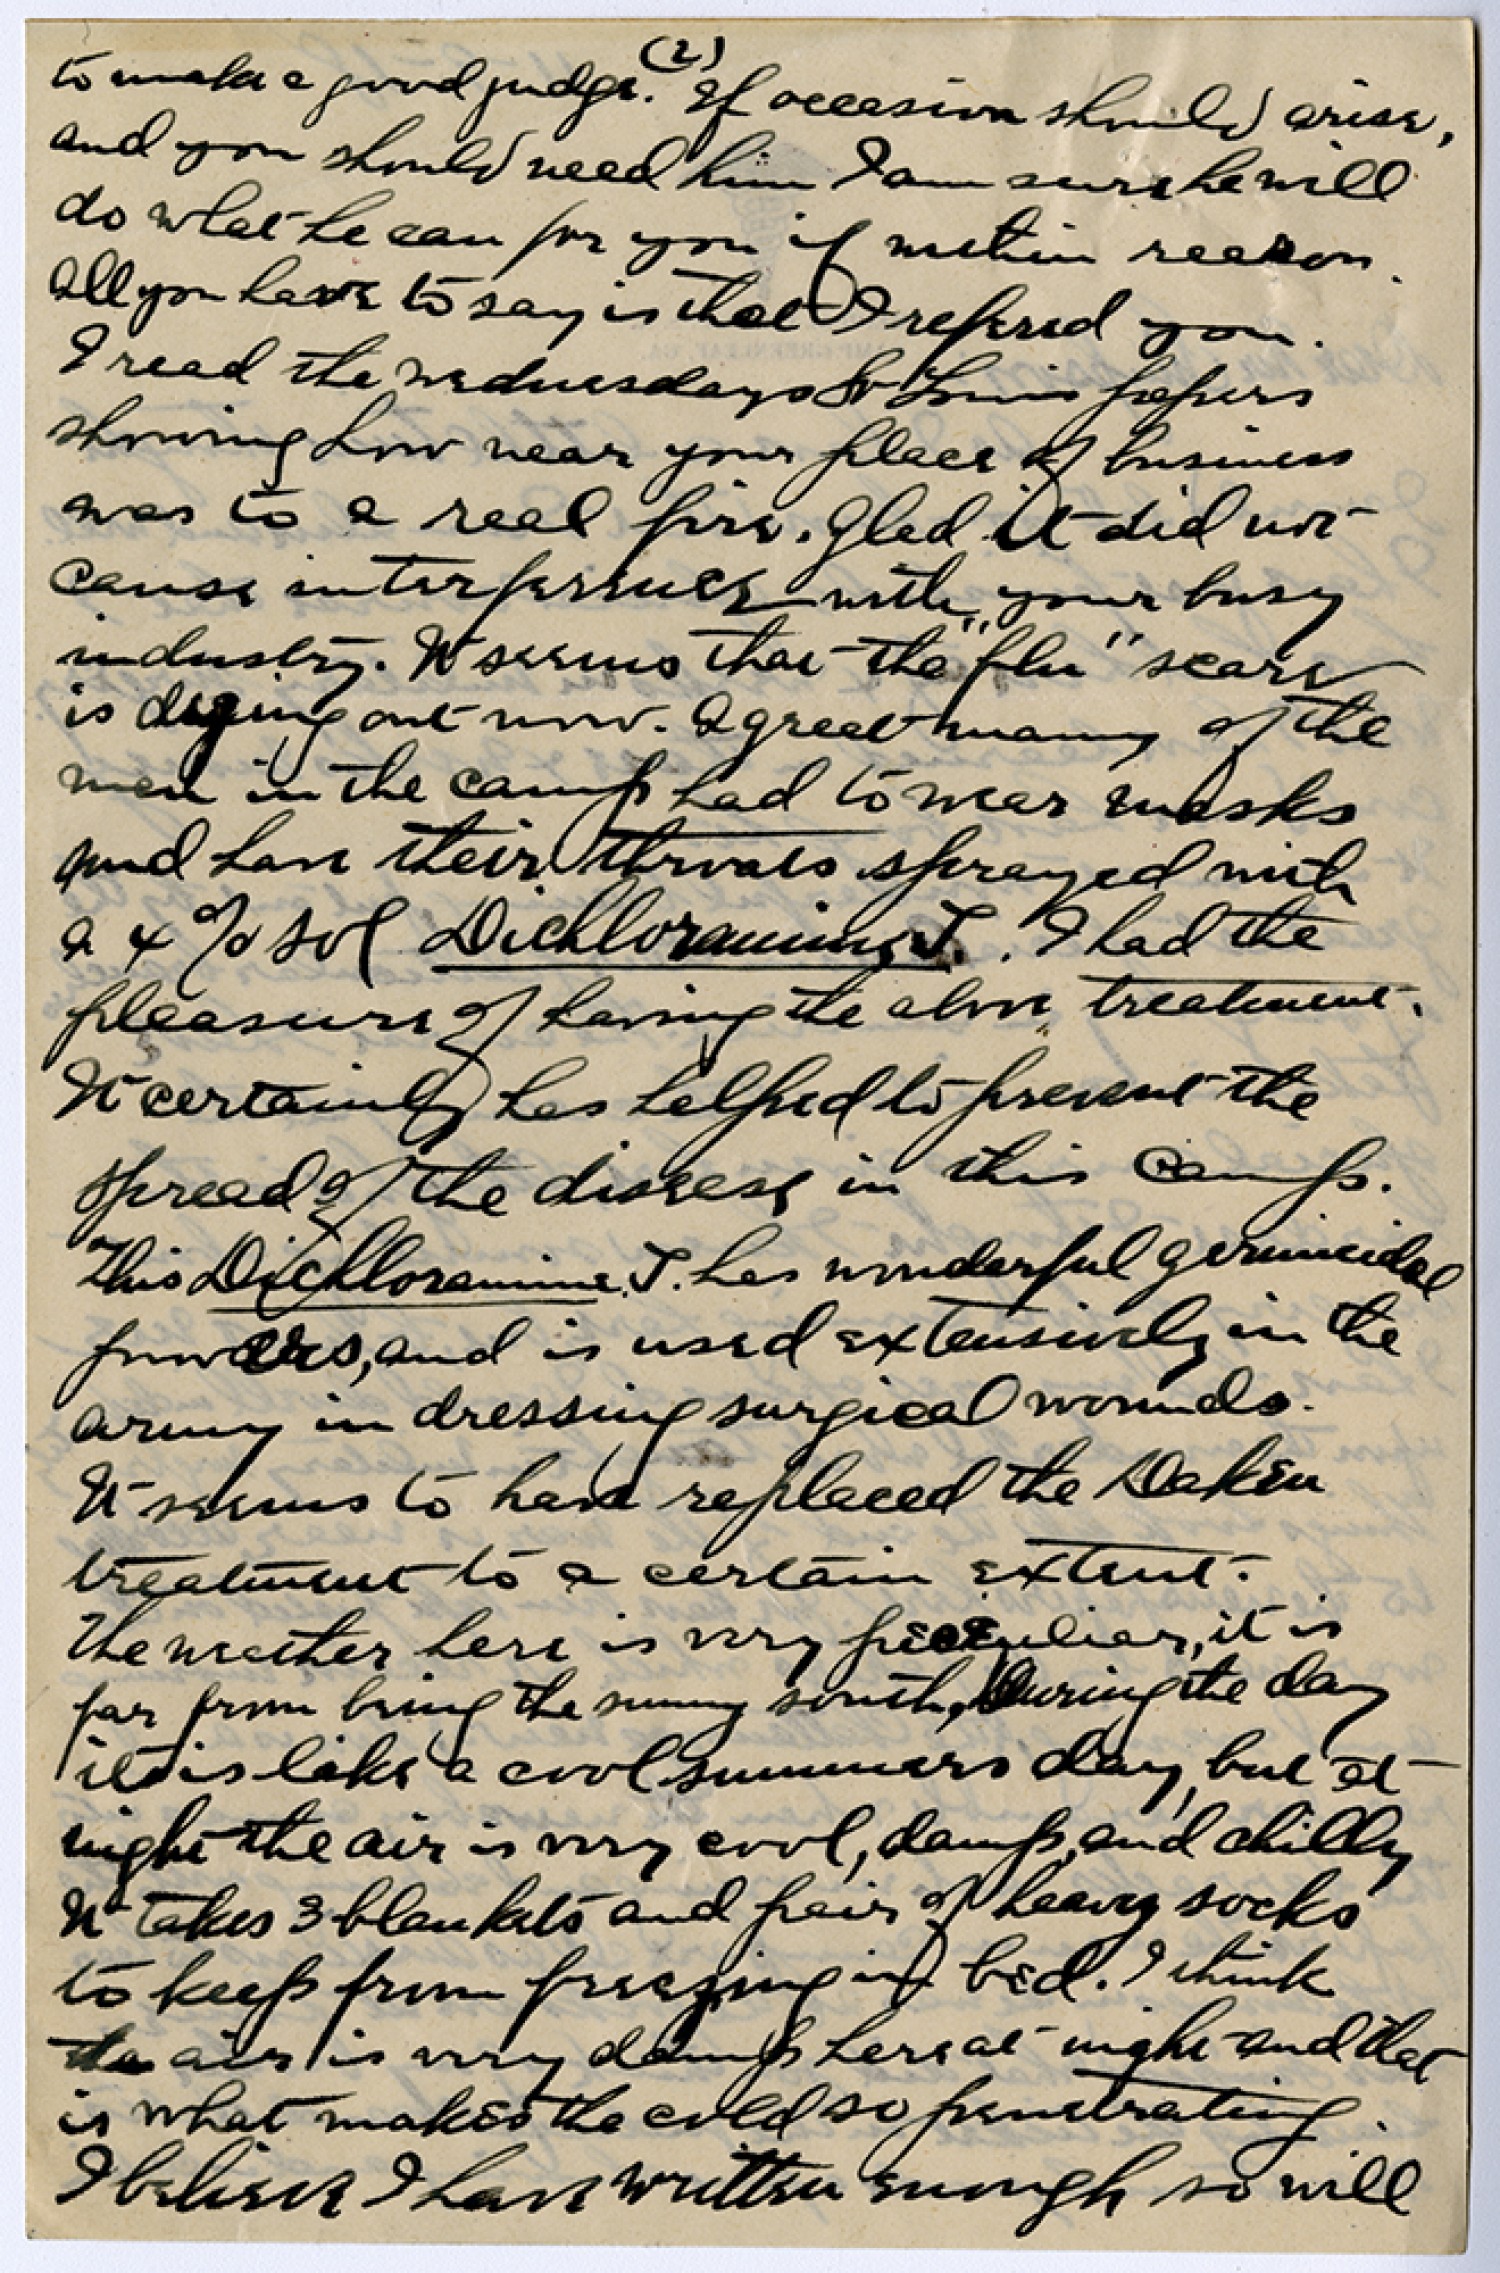 (2)
to make a good judge. If occasion should arise,
and you should need him I am sure he will
do what he can for you if within reason.
All you have to say is that I refered you.
I read the Wednesdays St Louis papers
showing how near your place of business
was to a real fire. Glad it did not
cause interference with your busy
industry. It seems that the "flu" scare
is dying out now. A great many of the
men in the camp had to wear masks
and have their throats sprayed with
a 4% sol Dichloramine T. I had the
pleasure of having the above treatment.
It certainly has helped to prevent the
spread of the disease in this camp.
This Dichloramine T. has wonderful germicidal
powers, and is used extensively in the
army in dressing surgical wounds.
It seems to have replaced the Daken
treatment to a certain extent.
The weather here is very peculiar, it is
far from being the sunny south, During the day
it is like a cool summers day, but at
night the air is very cool, damp, and chilly
It takes 3 blankets and pair of heavy socks
to keep from freezing in bed. I think
the air is very damp here at night and that
is what makes the cold so penetrating.
I believe I have written enough so will